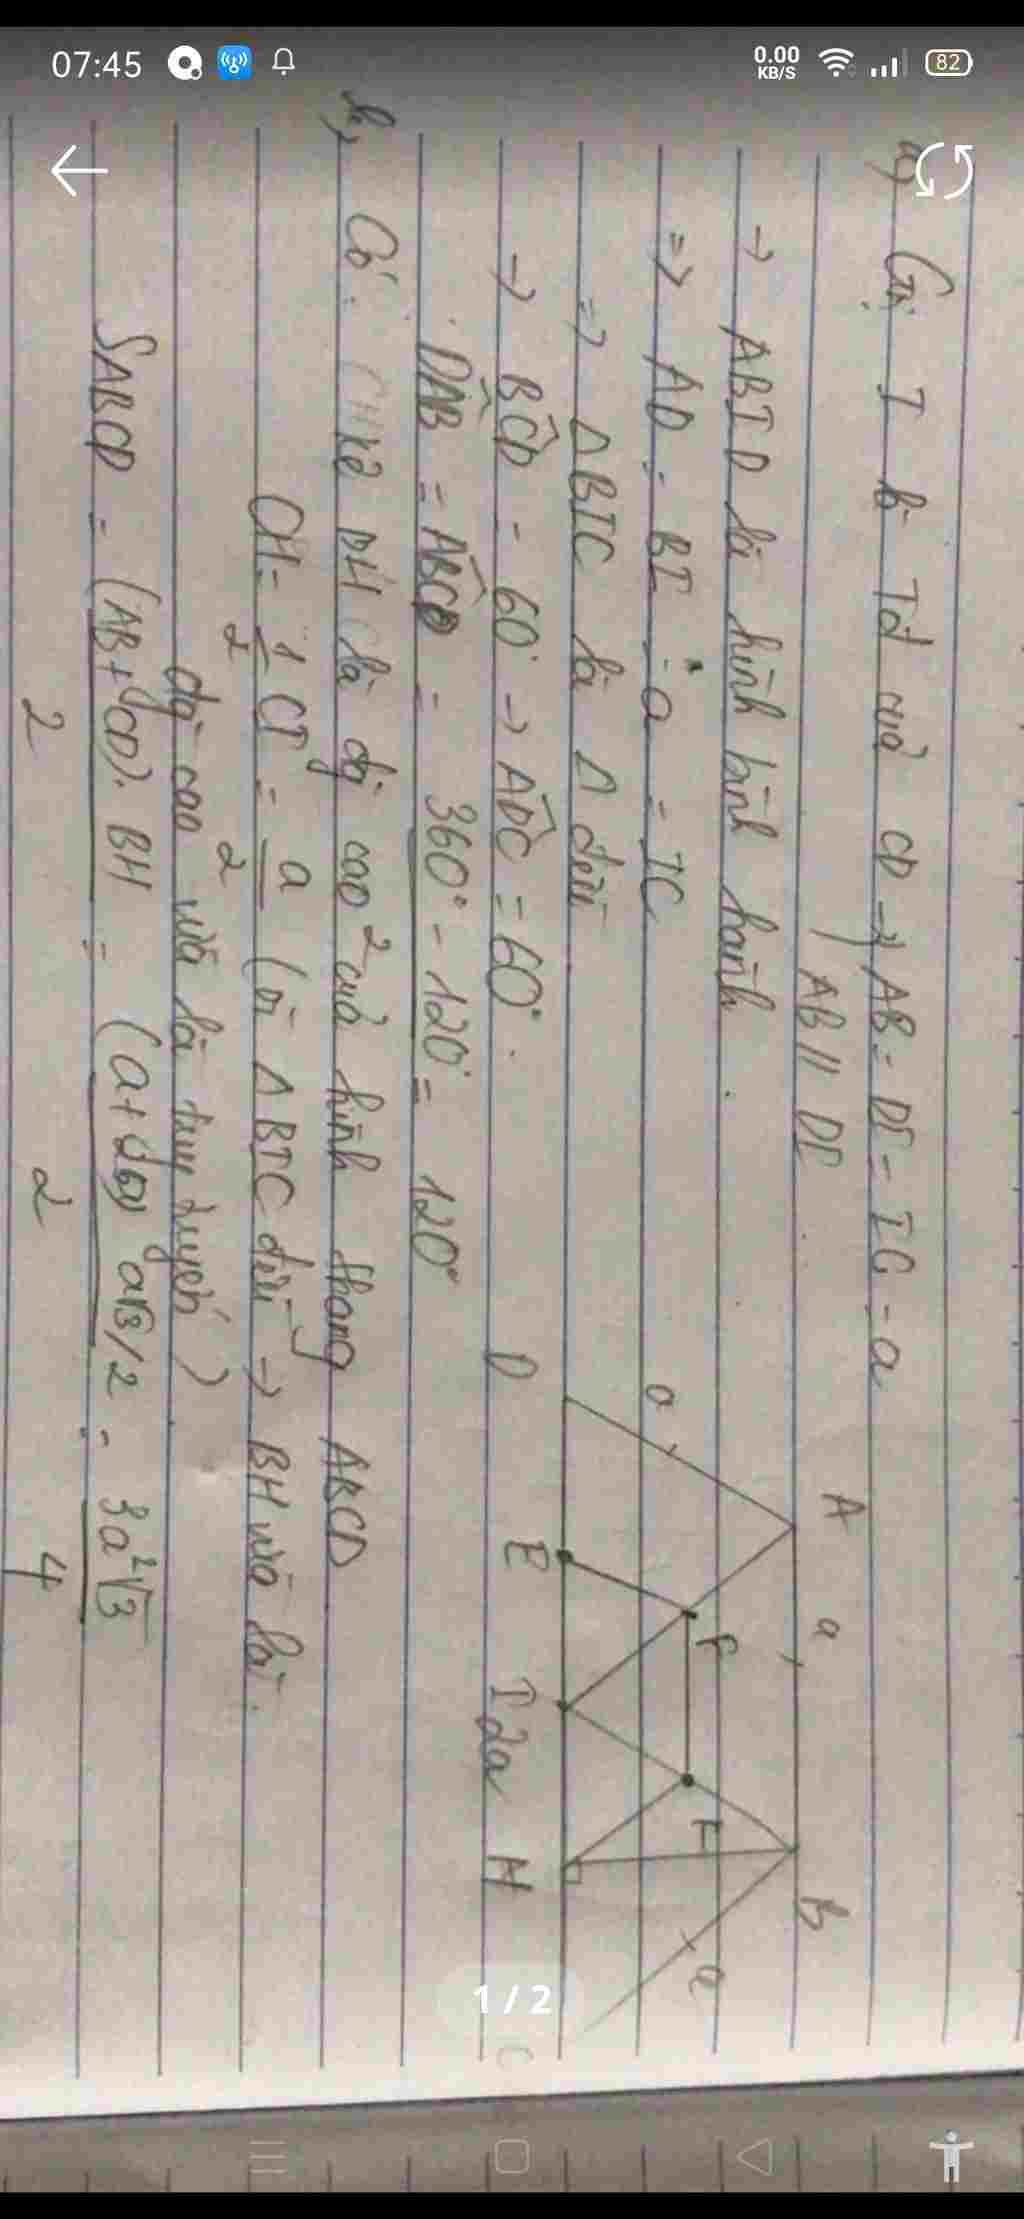 07:45
0.00 KB/S
82
a) Gọi I là Tđ của CD → AB = DI = IC = a
AB // DI
→ ABID là hình bình hành.
=> AD = BI = a = IC
=> Δ BIC là Δ đều
→ BCD = 60° → ADC = 60°.
DAB = ABCD = 360° - 120° = 120°
2
b, Có: kẻ BH là đg cao của hình thang ABCD
CH = 1/2 CI = a/2 (vì Δ BIC đều → BH vừa là
đg cao vừa là trung tuyến)
SABCD = (AB + CD). BH / 2 = (a + 2a) a√3/2 / 2 = 3a²√3 / 4
A a B
a F F a
D E I 2a H C
1 / 2